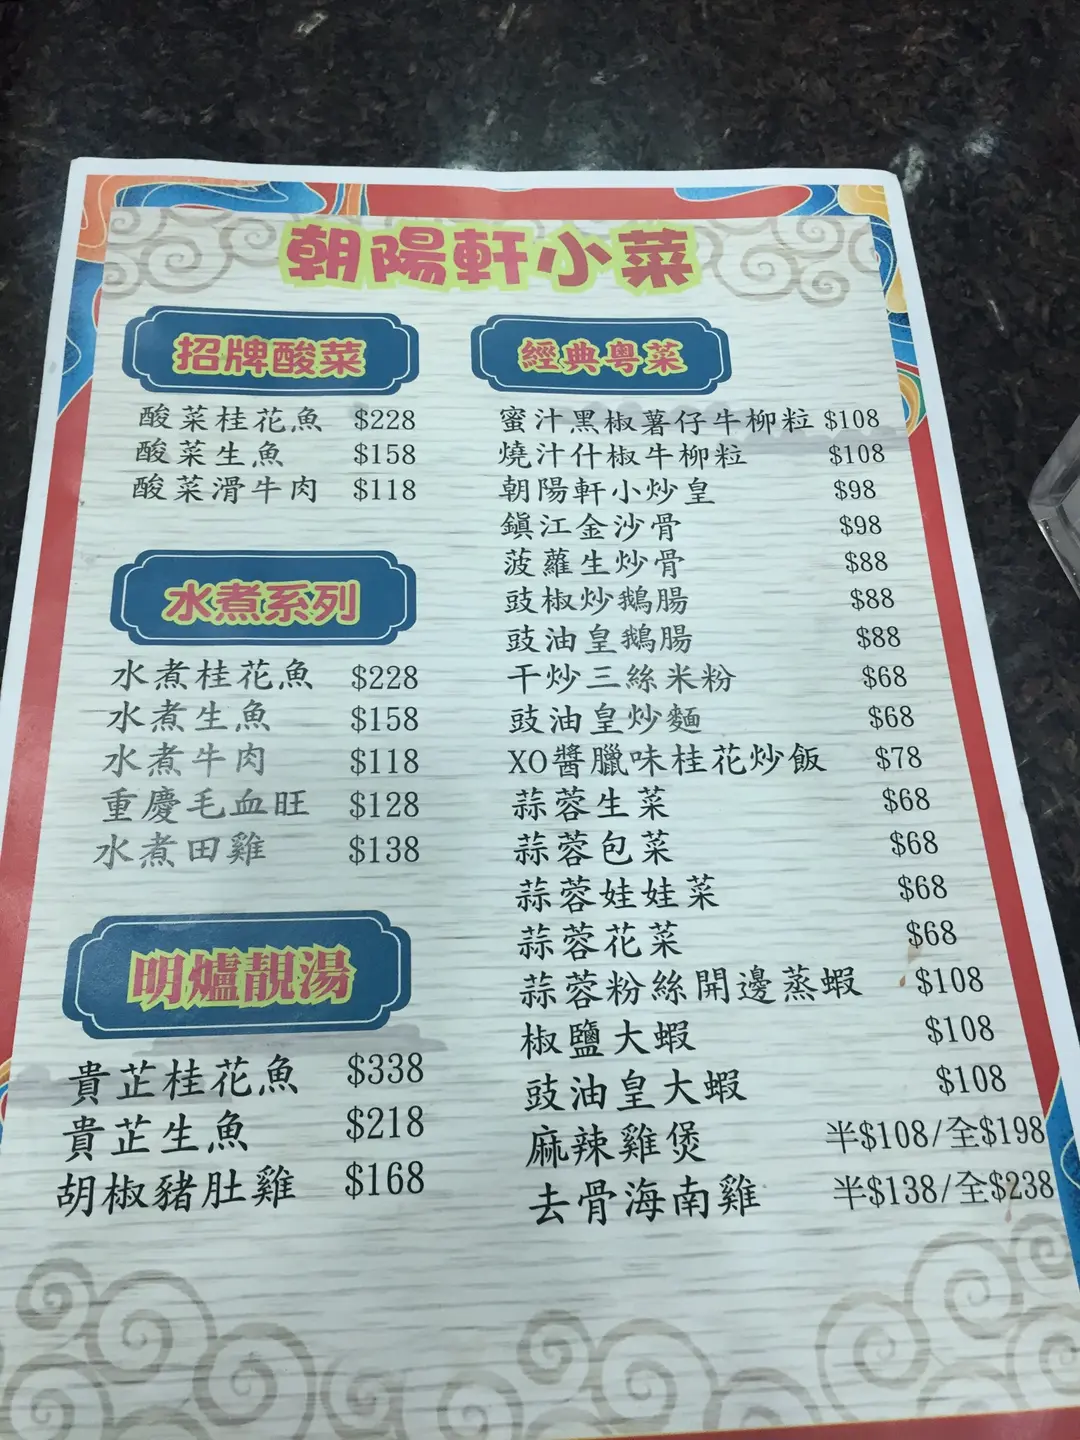 朝陽軒小菜
招牌酸菜
酸菜桂花魚 $228
酸菜生魚 $158
酸菜滑牛肉 $118
水煮系列
水煮桂花魚 $228
水煮生魚 $158
水煮牛肉 $118
重慶毛血旺 $128
水煮田雞 $138
明爐靚湯
貴芷桂花魚 $338
貴芷生魚 $218
胡椒豬肚雞 $168
經典粵菜
蜜汁黑椒薯仔牛柳粒 $108
燒汁什椒牛柳粒 $108
朝陽軒小炒皇 $98
鎮江金沙骨 $98
菠蘿生炒骨 $88
豉椒炒鵝腸 $88
豉油皇鵝腸 $88
干炒三絲米粉 $68
豉油皇炒麵 $68
XO醬臘味桂花炒飯 $78
蒜蓉生菜 $68
蒜蓉包菜 $68
蒜蓉娃娃菜 $68
蒜蓉花菜 $68
蒜蓉粉絲開邊蒸蝦 $108
椒鹽大蝦 $108
豉油皇大蝦 $108
麻辣雞煲 半$108/全$198
去骨海南雞 半$138/全$238